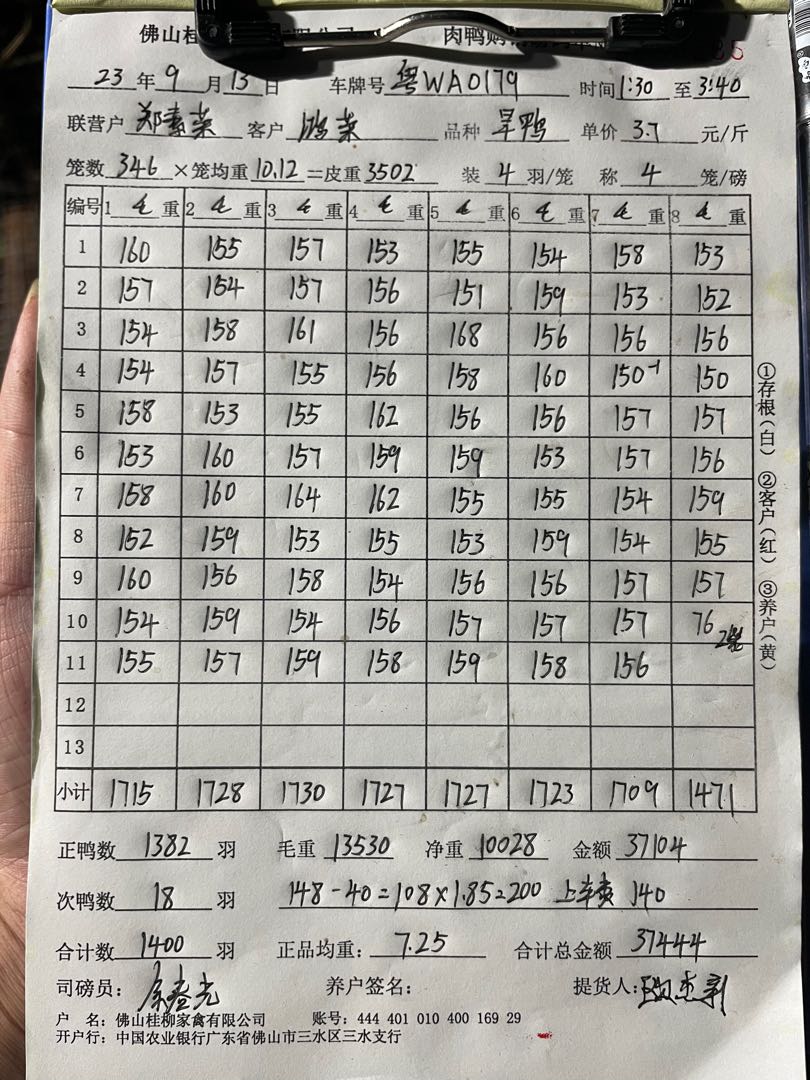 佛山桂 肉鸭购
23年9月13日 车牌号 粤WA0179 时间1:30 至3:40
联营户 郑素菜 客户 品种 旱鸭 单价 3.7 元/斤
笼数 346 ×笼均重 10.12 =皮重 3502 装 4 羽/笼 称 4 笼/磅
编号 1 毛 重 2 毛 重 3 毛 重 4 毛 重 5 毛 重 6 毛 重 7 毛 重 8 毛 重
1 160 155 157 153 155 154 158 153
2 157 154 157 156 151 159 153 152
3 154 158 161 156 168 156 156 156
4 154 157 155 156 158 160 150-1 150
5 158 153 155 162 156 156 157 157
6 153 160 157 159 159 153 157 156
7 158 160 164 162 155 155 154 159
8 152 159 153 155 153 159 154 155
9 160 156 158 154 156 156 157 157
10 154 159 154 156 157 157 157 76 2笼
11 155 157 159 158 159 158 156
12
13
小计 1715 1728 1730 1727 1727 1723 1709 1471
①存根(白) ②客户(红) ③养户(黄)
正鸭数 1382 羽 毛重 13530 净重 10028 金额 37104
次鸭数 18 羽 148-40=108×1.85=200 上车费 140
合计数 1400 羽 正品均重: 7.25 合计总金额 37444
司磅员: 养户签名: 提货人:
户 名: 佛山桂柳家禽有限公司 账号: 444 401 010 400 169 29
开户行: 中国农业银行广东省佛山市三水区三水支行